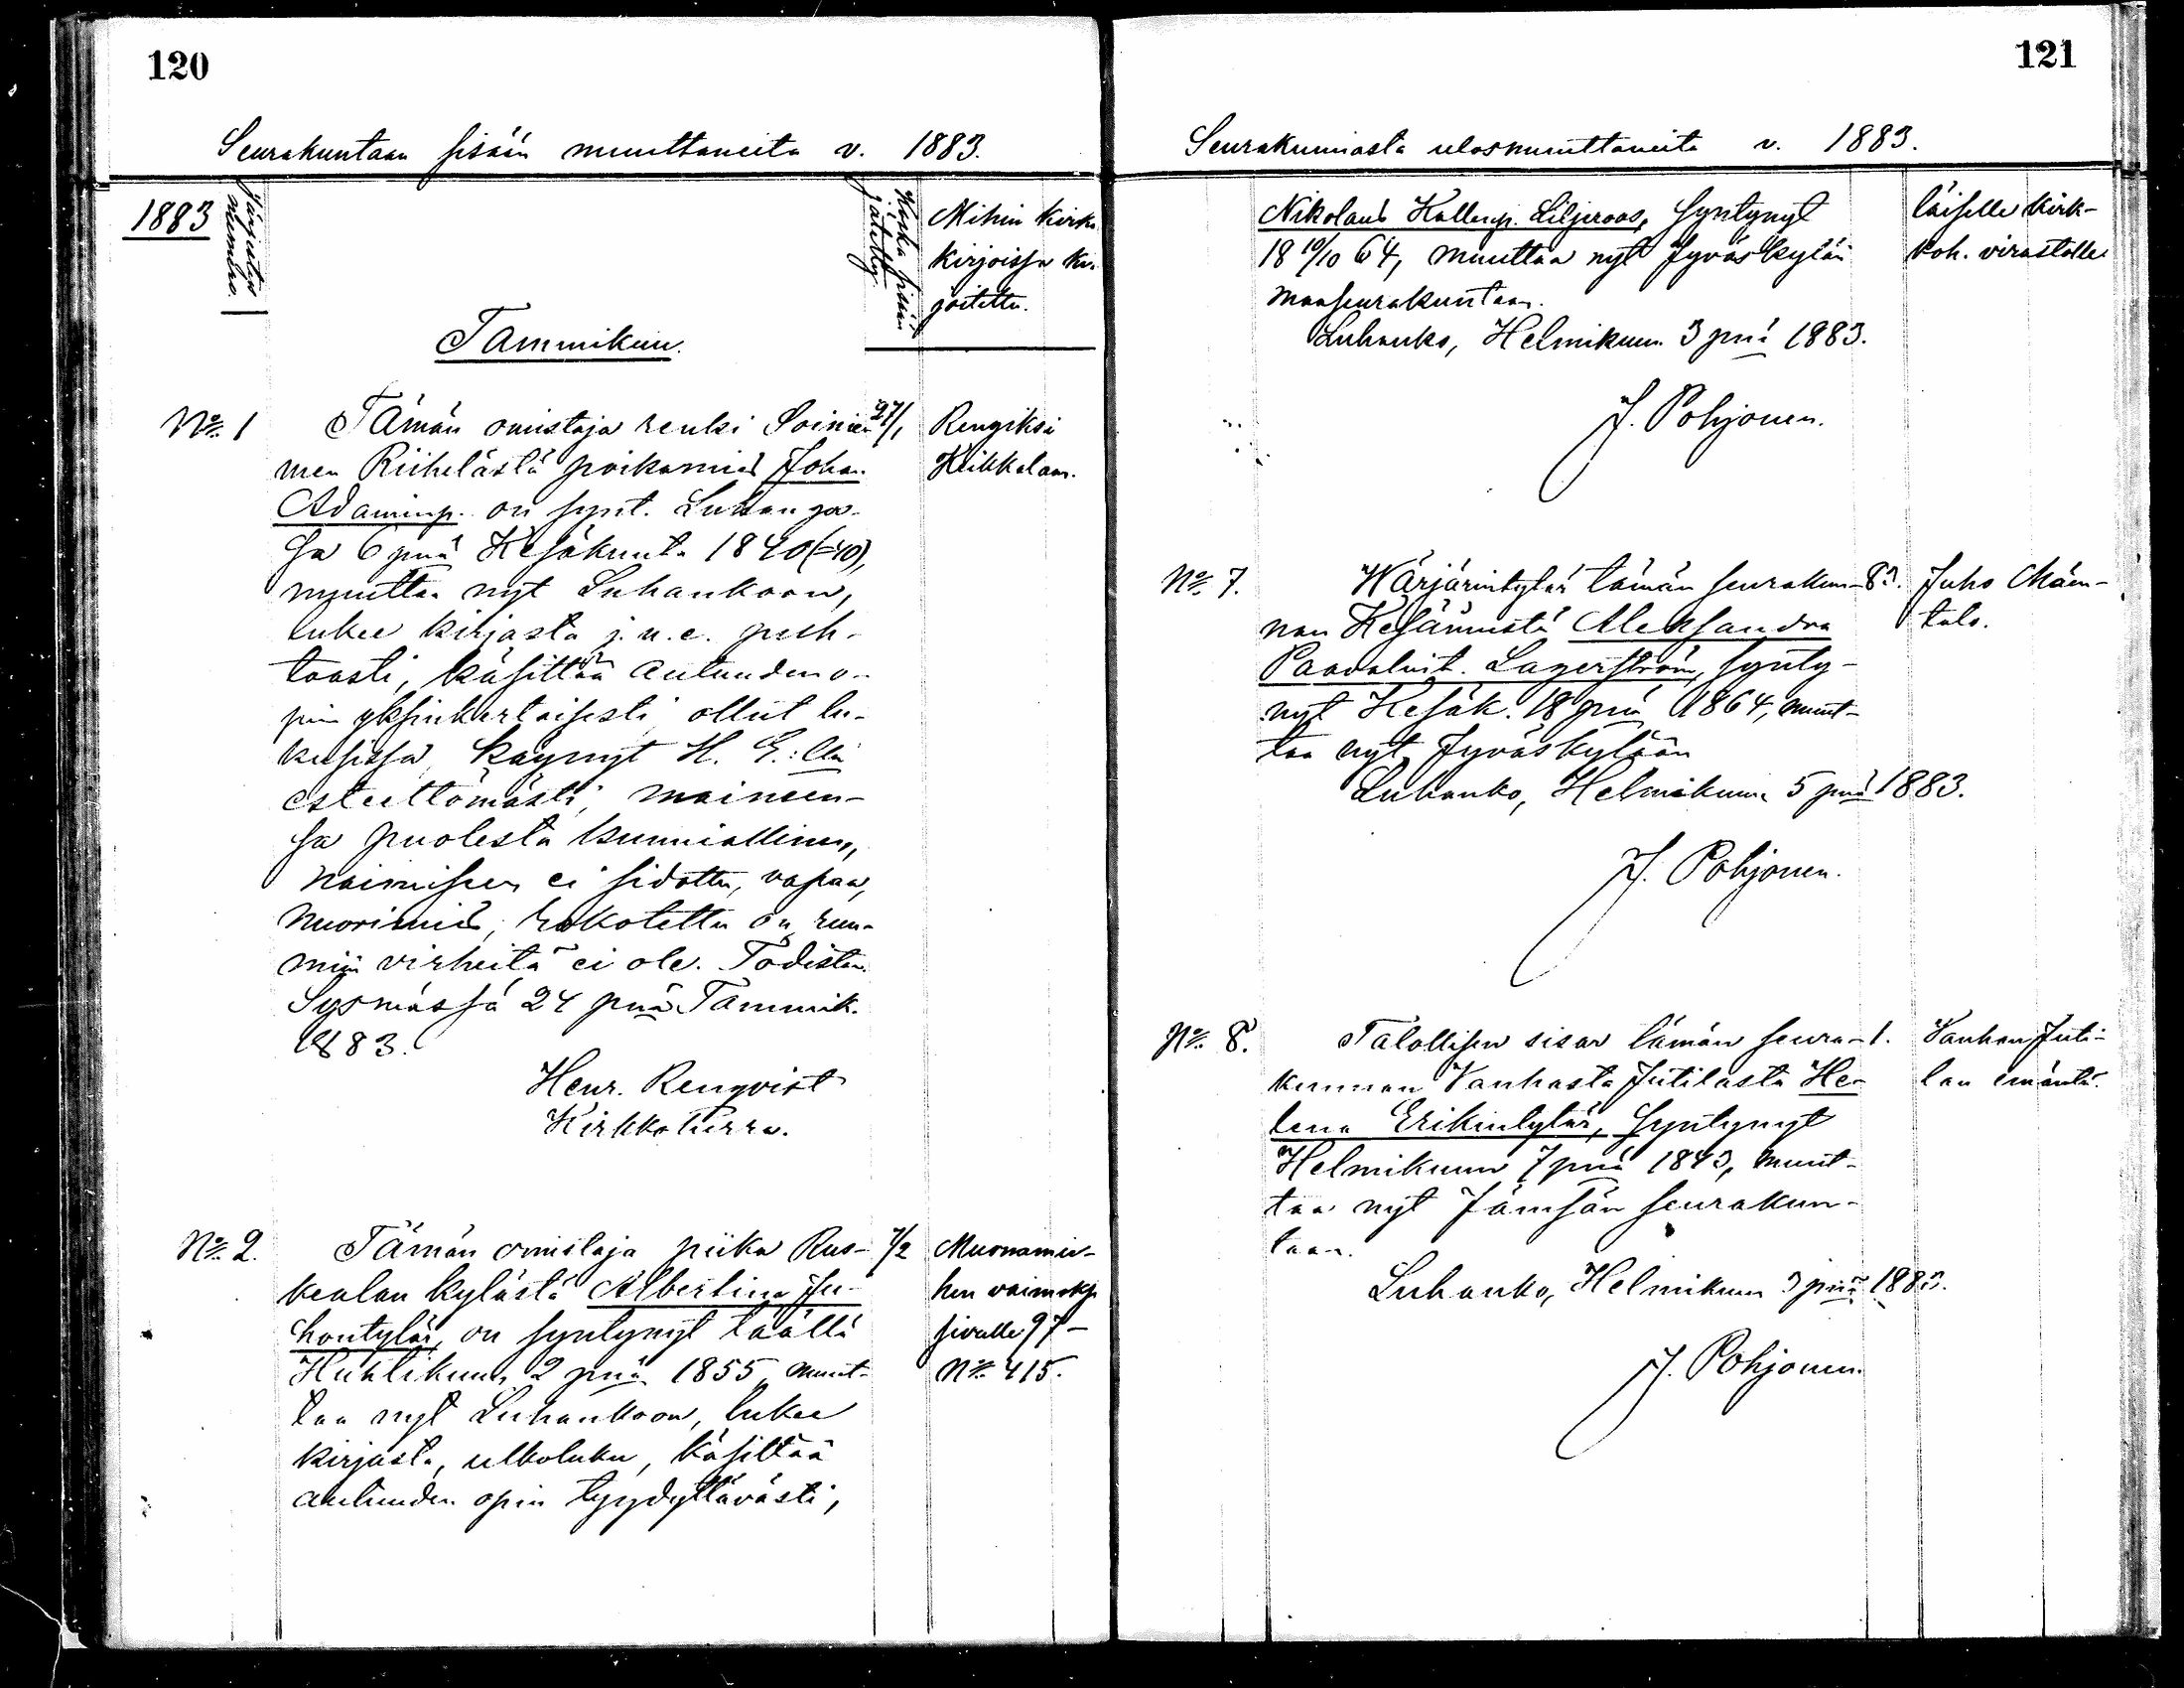 120
Seurakuntaan sisään muuttaneita v. 1883.
1883
Järjestys numero.
Koska sisään jätetty
Mihin kirkon
kirjoissa kir-
joitettu.
Tammikuu.
No 1
Tämän omistaja renki Soinie- 27/1
men Riihelästä poikamies Johan
Adaminp. on synt. Luhanga-
sa 6 pnä Kesäkuuta 1840 (=40),
muuttaa nyt Luhankoon,
lukee kirjasta j.n.e. puh-
taasti, käsittää autuuden o-
pin yksinkertaisesti, ollut lu-
kusissa, käynyt H. E:lla
esteettömästi, maineen-
sa puolesta kunniallinen,
naimiseen ei sidottu, vapaa,
nuorimies, rokotettu on, ruu-
miin virheitä ei ole. Todistan.
Sysmässä 24 pnä Tammik.
1883.
Henr. Renqvist
Kirkkoherra.
Rengiksi
Keikkalaan.
No 2.
Tämän omistaja piika Rus- 7/2
kealan kylästä Albertina Ju-
hontytär, on syntynyt täällä
Huhtikuun 2 pnä 1855, muut-
taa nyt Luhankoon, lukee
kirjasta, ulkoluku, käsittää
autuuden opin tyydyttävästi,
Muonamie-
hen vaimoksi
sivulle 97 –
No 415.
121
Seurakunnasta ulosmuuttaneita v. 1883.
Nikolaus Kallenp. Liljeroos, syntynyt
18 10/10 64, muuttaa nyt Jyväskylän
maaseurakuntaan.
Luhanko, Helmikuun 3 pnä 1883.
J. Pohjonen.
läiselle kirk-
koh. virastolle
No 7.
Wärjärintytär tämän seurakun- 83.
nan Kesännistä Aleksandra
Paavalint. Lagerström, synty-
nyt Kesäk. 18 pnä 1864, muut-
taa nyt Jyväskylään
Luhanko, Helmikuun 5 pnä 1883.
J. Pohjonen.
Juho Mäen-
talo.
No 8.
Talollisen sisar tämän seura- 1.
kunnan Vanhasta Jutilasta He-
lena Erikintytär, syntynyt
Helmikuun 7 pnä 1843, muut-
taa nyt Jämsän seurakun-
taan.
Luhanko, Helmikuun 3 pnä 1883.
J. Pohjonen.
Vanhan Juti-
lan emäntä.